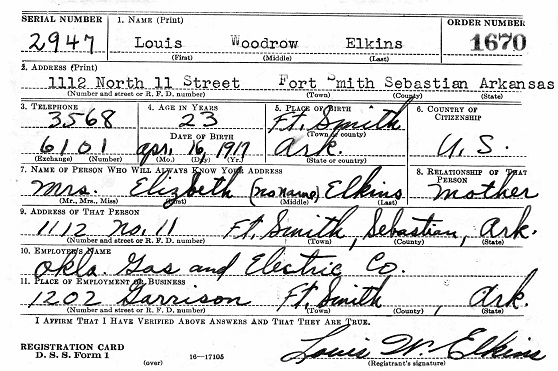 SERIAL NUMBER 1. NAME (Print) ORDER NUMBER
2947 Louis Woodrow Elkins 1670
(First) (Middle) (Last)
2. ADDRESS (Print)
1112 North 11 Street Fort Smith Sebastian Arkansas
(Number and street or R. F. D. number) (Town) (County) (State)
3. TELEPHONE 4. AGE IN YEARS 5. PLACE OF BIRTH 6. COUNTRY OF CITIZENSHIP
3568 23 Ft. Smith
DATE OF BIRTH (Town or county)
6101 Apr. 16, 1917 Ark. U. S.
(Exchange) (Number) (Mo.) (Day) (Yr.) (State or country)
7. NAME OF PERSON WHO WILL ALWAYS KNOW YOUR ADDRESS 8. RELATIONSHIP OF THAT PERSON
Mrs. Elizbeth (No Name) Elkins Mother
(Mr., Mrs., Miss) (First) (Middle) (Last)
9. ADDRESS OF THAT PERSON
1112 No. 11 Ft. Smith, Sebastian, Ark.
(Number and street or R. F. D. number) (Town) (County) (State)
10. EMPLOYER'S NAME
Okla. Gas and Electric Co.
11. PLACE OF EMPLOYMENT OR BUSINESS
1202 Garrison Ft. Smith, Ark.
(Number and street or R. F. D. number) (Town) (County) (State)
I AFFIRM THAT I HAVE VERIFIED ABOVE ANSWERS AND THAT THEY ARE TRUE.
REGISTRATION CARD
D. S. S. Form 1 16—17105 Louis W. Elkins
(over) (Registrant's signature)